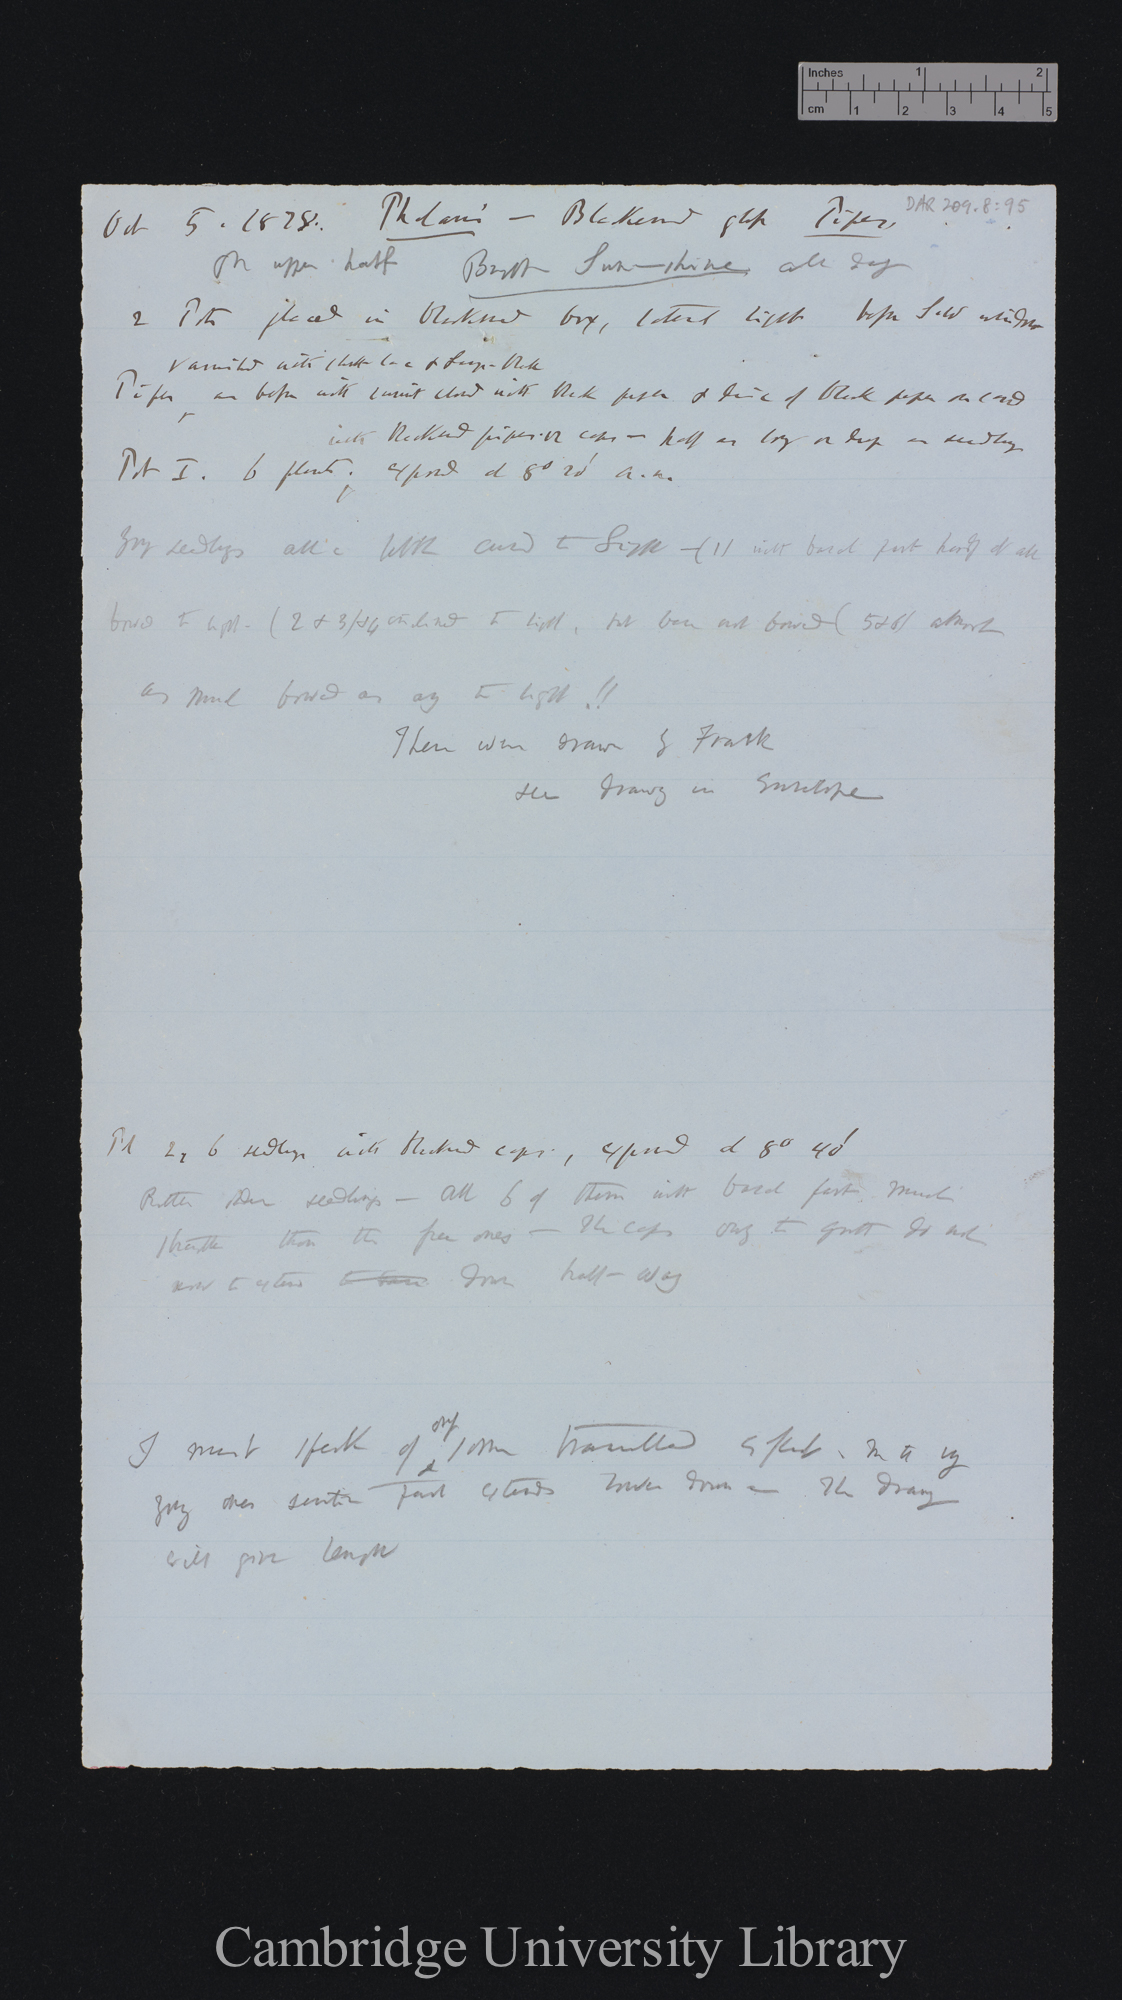 Inches 1 2
cm 1 2 3 4 5
DAR 209.8:95
Oct 5. 1878. Phalaris — Blackened glass Pipes
On upper half Bright Sun-shine all day
2 Pots placed in blackened box, lateral light before window
varnished with shell-lac & Lamp-black
Pipes, as before with summit closed with black paper & disc of black paper on card
with blackened pipes or caps — half as long or deep as seedlings
Pot I. 6 plants; exposed at 8° 20' a.m.
Young seedlings all a little curved to light — (1) with basal part hardly at all
bowed to light. (2 & 3) & 4 inclined to light, but base not bowed (5 & 6) almost
as much bowed as any to light!!
These were drawn by Frank
see drawing in Envelope
Pot 2, 6 seedlings with blackened caps, exposed at 8° 40'
Rather older seedlings — All 6 of them with basal part much
than the free ones — The caps owing to growth do not
now to extend to base down half-way
I must speak of only some transmitted effect. in the
young ones part extends lower down — The drawing
will give length
Cambridge University Library